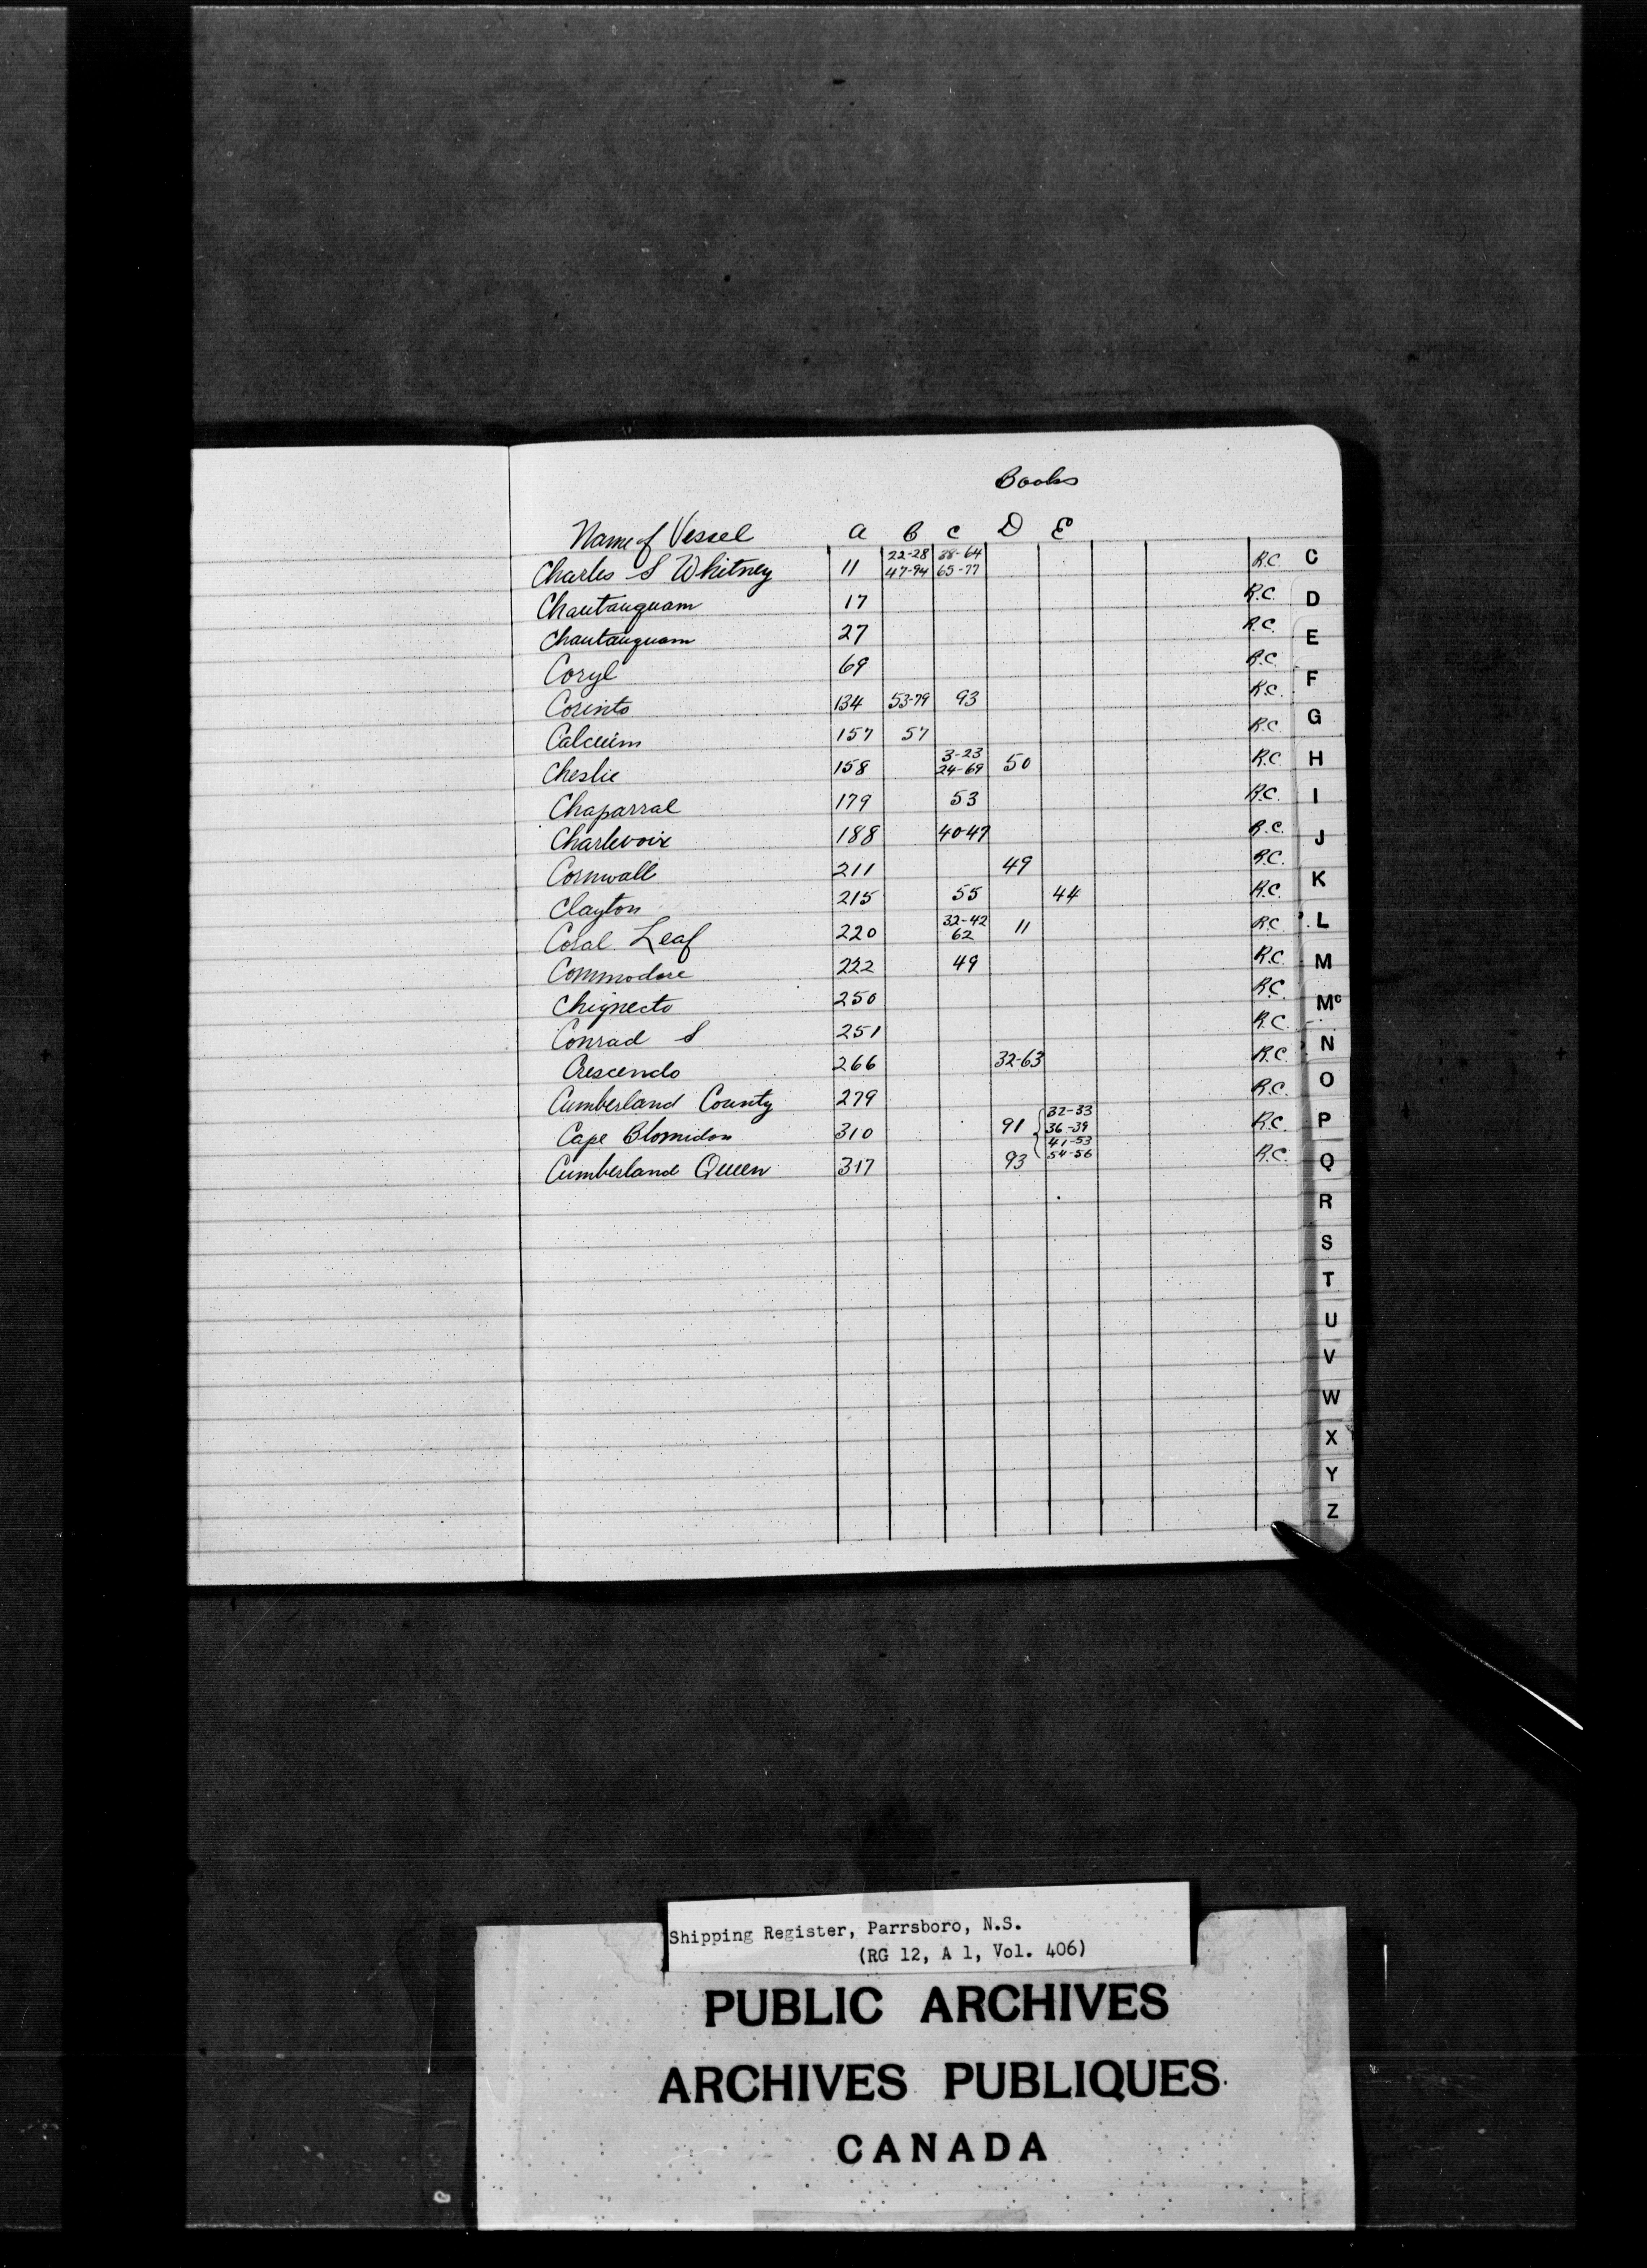 Books
Name of Vessel A B C D E
Charles S Whitney 11 22-28 47-94 38-64 65-77 R.C. C
Chautauquam 17 R.C. D
Chautauquam 27 R.C. E
Coryl 69 R.C.
Corinto 134 53-79 93 R.C. F
Calcium 157 57 R.C. G
Cheslie 158 3-23 24-69 50 R.C. H
Chaparral 179 53 R.C. I
Charlevoix 188 40-47 R.C. J
Cornwall 211 49 R.C.
Clayton 215 55 44 R.C. K
Coral Leaf 220 32-42 62 11 R.C. L
Commodore 222 49 R.C. M
Chignecto 250 R.C. Mc
Conrad S 251 R.C. N
Crescendo 266 32-63 R.C.
Cumberland County 279 R.C. O
Cape Blomidon 310 91 32-33 36-39 R.C. P
Cumberland Queen 317 93 41-53 54-56 R.C. Q
R
S
T
U
V
W
X
Y
Z
Shipping Register, Parrsboro, N.S.
(RG 12, A 1, Vol. 406)
PUBLIC ARCHIVES
ARCHIVES PUBLIQUES
CANADA